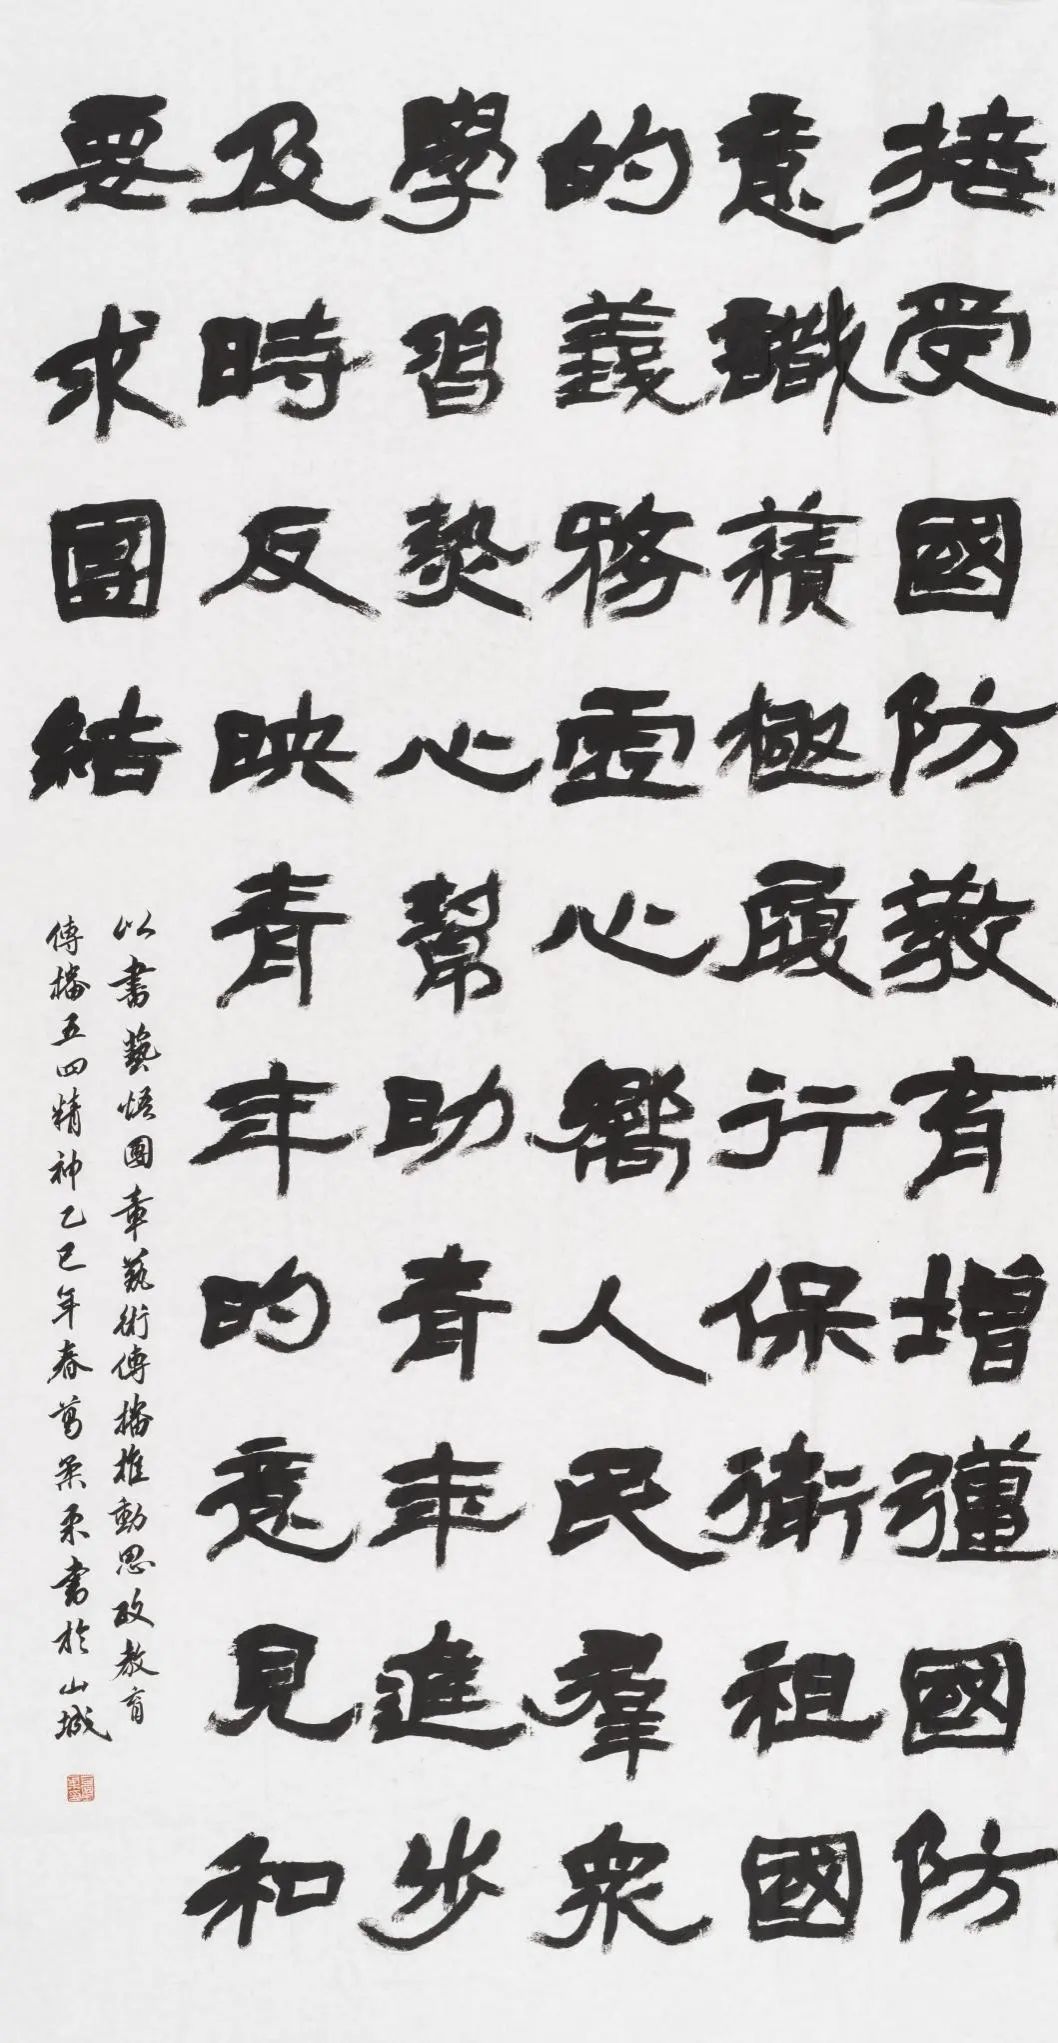 接受國防教育增彊國防
意識積極履行保衛祖國
的義務虛心嚮人民羣衆
學習熱心幫助青年進步
及時反映青年的意見和
要求團結
以書藝悟團章藝術傳播推動思政教育
傳播五四精神乙巳年春書於山城